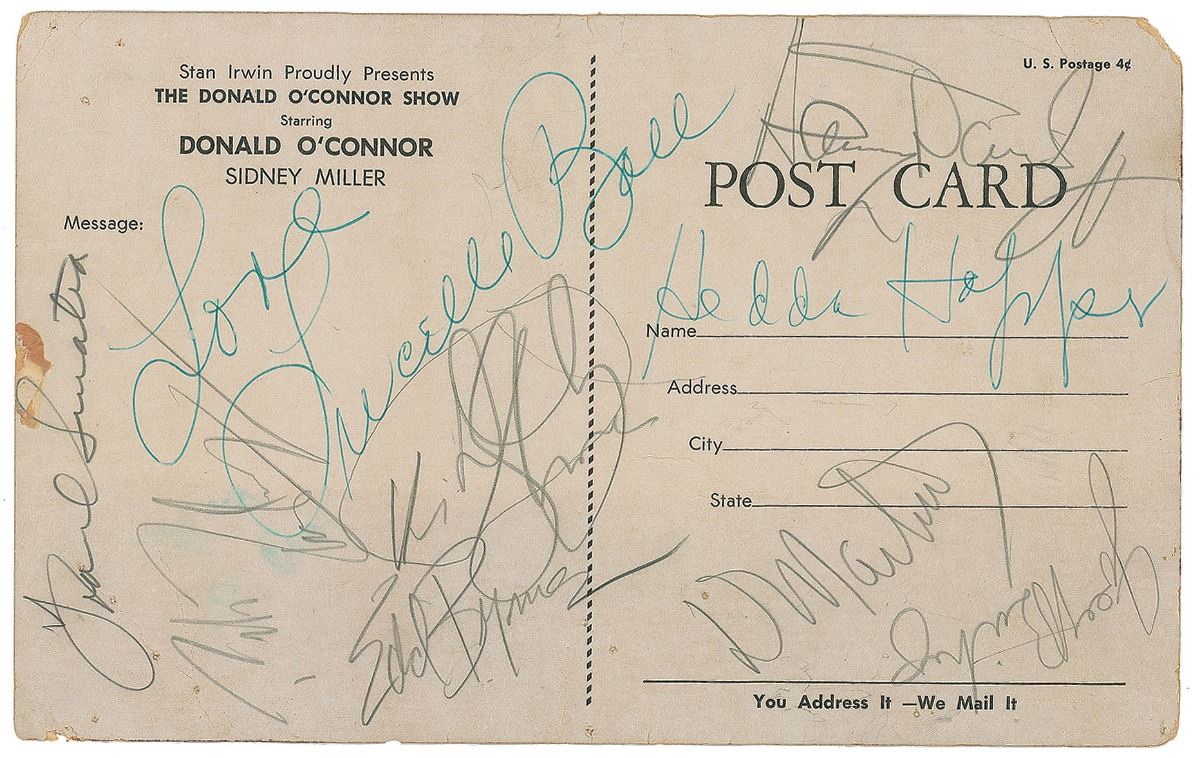 Stan Irwin Proudly Presents
THE DONALD O'CONNOR SHOW
Starring
DONALD O'CONNOR
SIDNEY MILLER
Message:
Love
Lucille Ball
Frank Sinatra
Edd Byrnes
U. S. Postage 4¢
POST CARD
Hedda Hopper
Name
Address
City
State
D Martin
You Address It —We Mail It